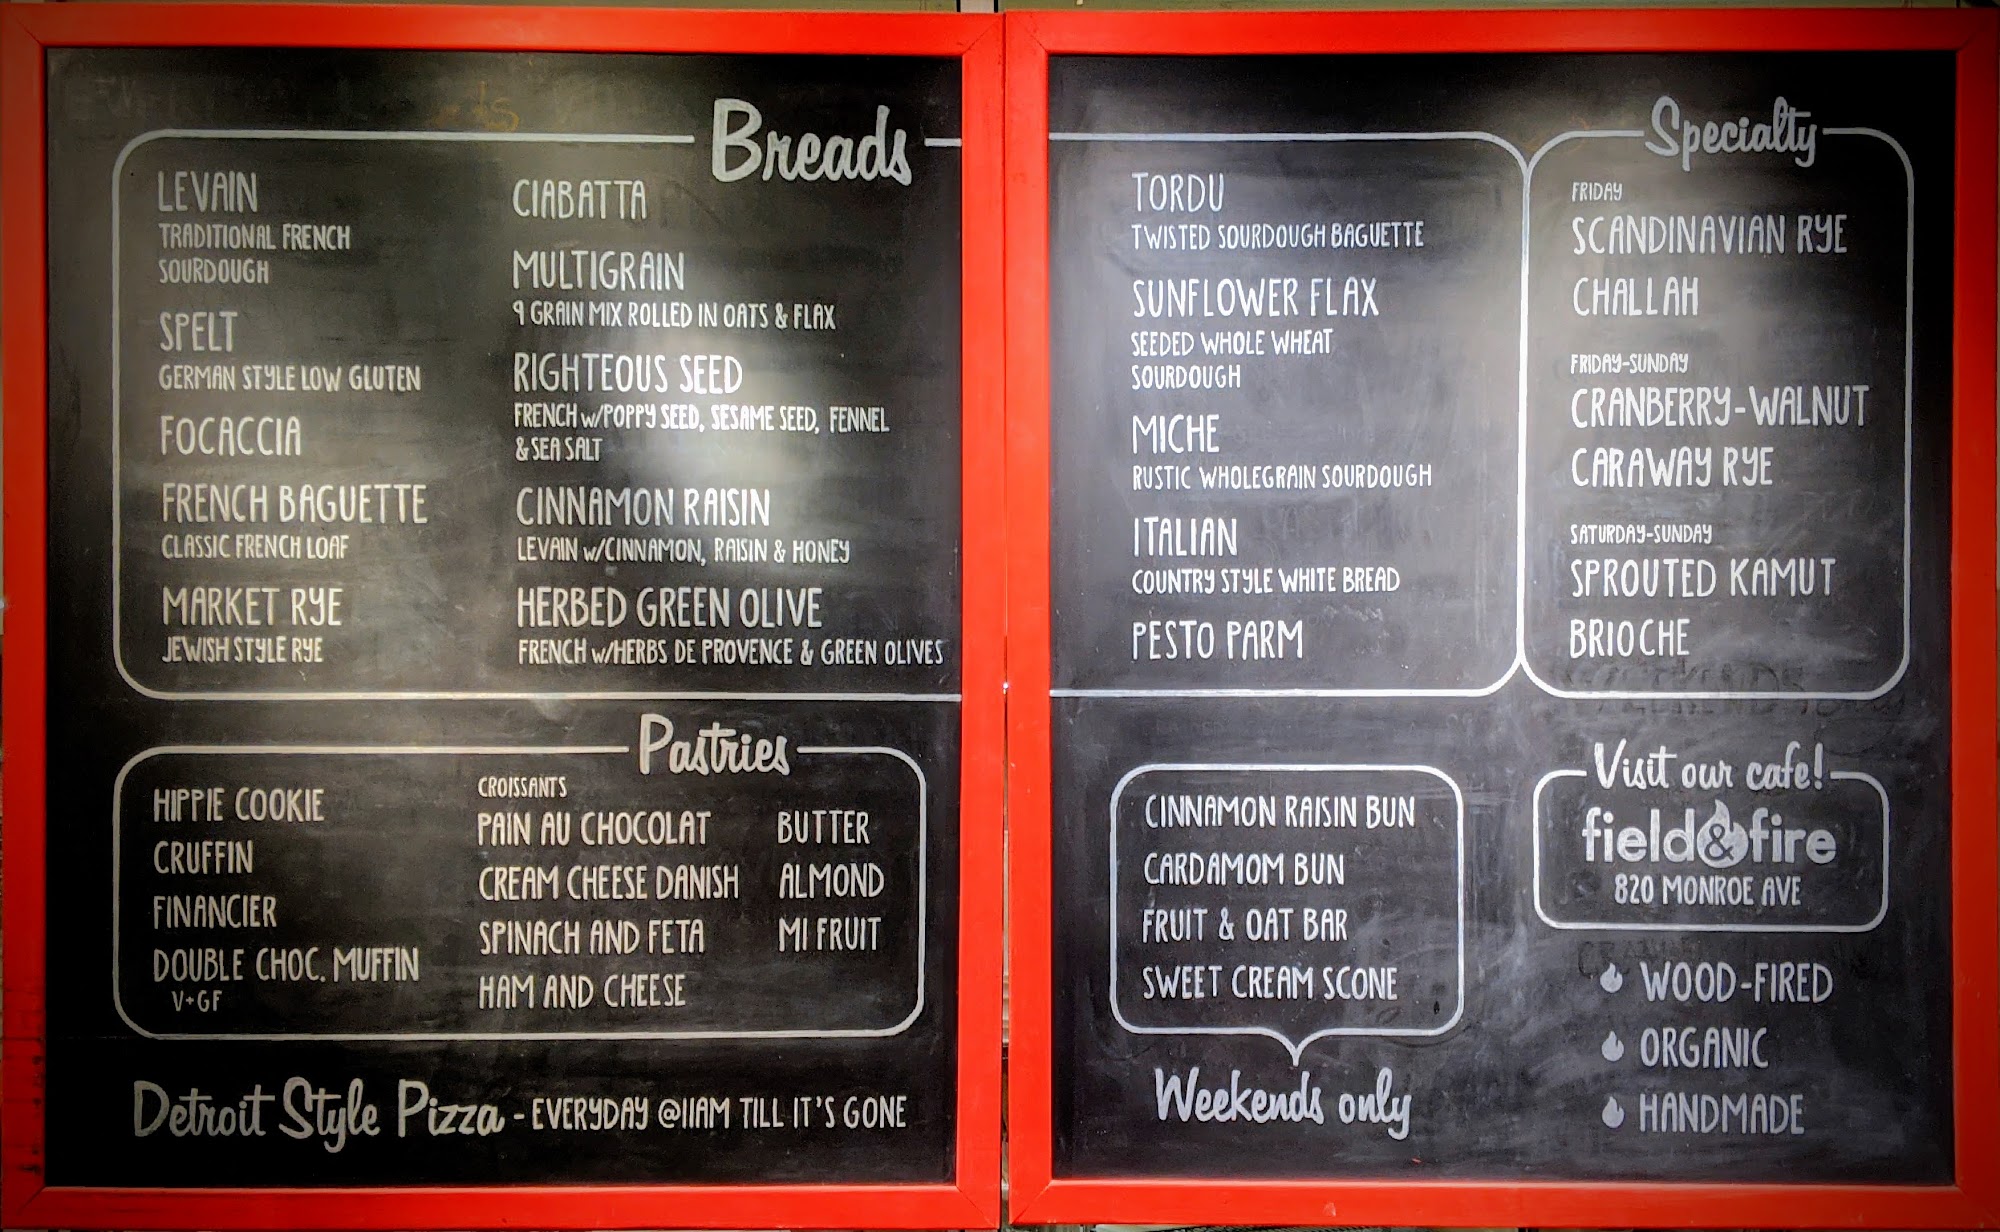 Breads
LEVAIN
TRADITIONAL FRENCH
SOURDOUGH
SPELT
GERMAN STYLE LOW GLUTEN
FOCACCIA
FRENCH BAGUETTE
CLASSIC FRENCH LOAF
MARKET RYE
JEWISH STYLE RYE
CIABATTA
MULTIGRAIN
9 GRAIN MIX ROLLED IN OATS & FLAX
RIGHTEOUS SEED
FRENCH w/POPPY SEED, SESAME SEED, FENNEL
& SEA SALT
CINNAMON RAISIN
LEVAIN w/CINNAMON, RAISIN & HONEY
HERBED GREEN OLIVE
FRENCH w/HERBS DE PROVENCE & GREEN OLIVES
TORDU
TWISTED SOURDOUGH BAGUETTE
SUNFLOWER FLAX
SEEDED WHOLE WHEAT
SOURDOUGH
MICHE
RUSTIC WHOLEGRAIN SOURDOUGH
ITALIAN
COUNTRY STYLE WHITE BREAD
PESTO PARM
Specialty
FRIDAY
SCANDINAVIAN RYE
CHALLAH
FRIDAY-SUNDAY
CRANBERRY-WALNUT
CARAWAY RYE
SATURDAY-SUNDAY
SPROUTED KAMUT
BRIOCHE
Pastries
HIPPIE COOKIE
CRUFFIN
FINANCIER
DOUBLE CHOC. MUFFIN
V+GF
CROISSANTS
PAIN AU CHOCOLAT
CREAM CHEESE DANISH
SPINACH AND FETA
HAM AND CHEESE
BUTTER
ALMOND
MI FRUIT
Detroit Style Pizza - EVERYDAY @11AM TILL IT'S GONE
CINNAMON RAISIN BUN
CARDAMOM BUN
FRUIT & OAT BAR
SWEET CREAM SCONE
Weekends only
Visit our cafe!
field&fire
820 MONROE AVE
WOOD-FIRED
ORGANIC
HANDMADE